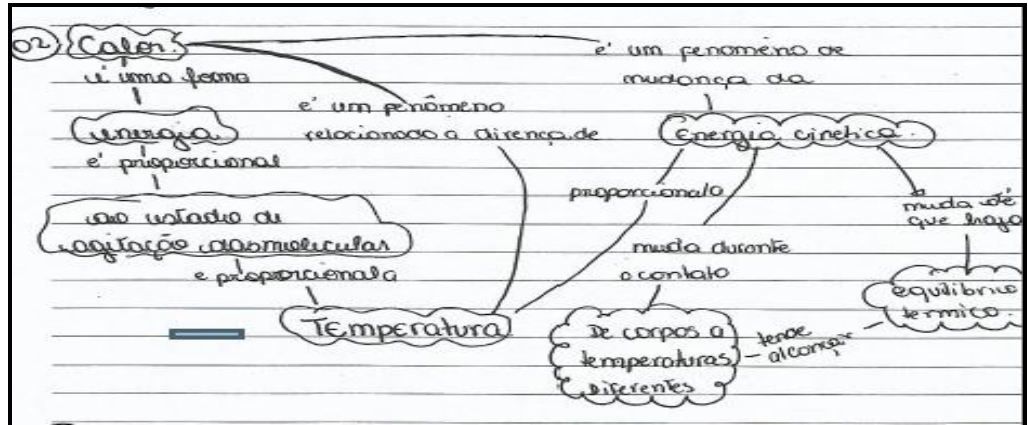 02) Calor.
é uma forma
energia
é proporcional
ao estado de
agitação das molecular
e proporcional a
Temperatura
é um fenômeno
relacionado a dirença de
é um fenomêno de
mudança da
Energia cinetica.
proporcional a
muda durante
o contato
De corpos a
temperaturas
diferentes
tende
alcançar
muda até
que haja
equilibrio
termico.